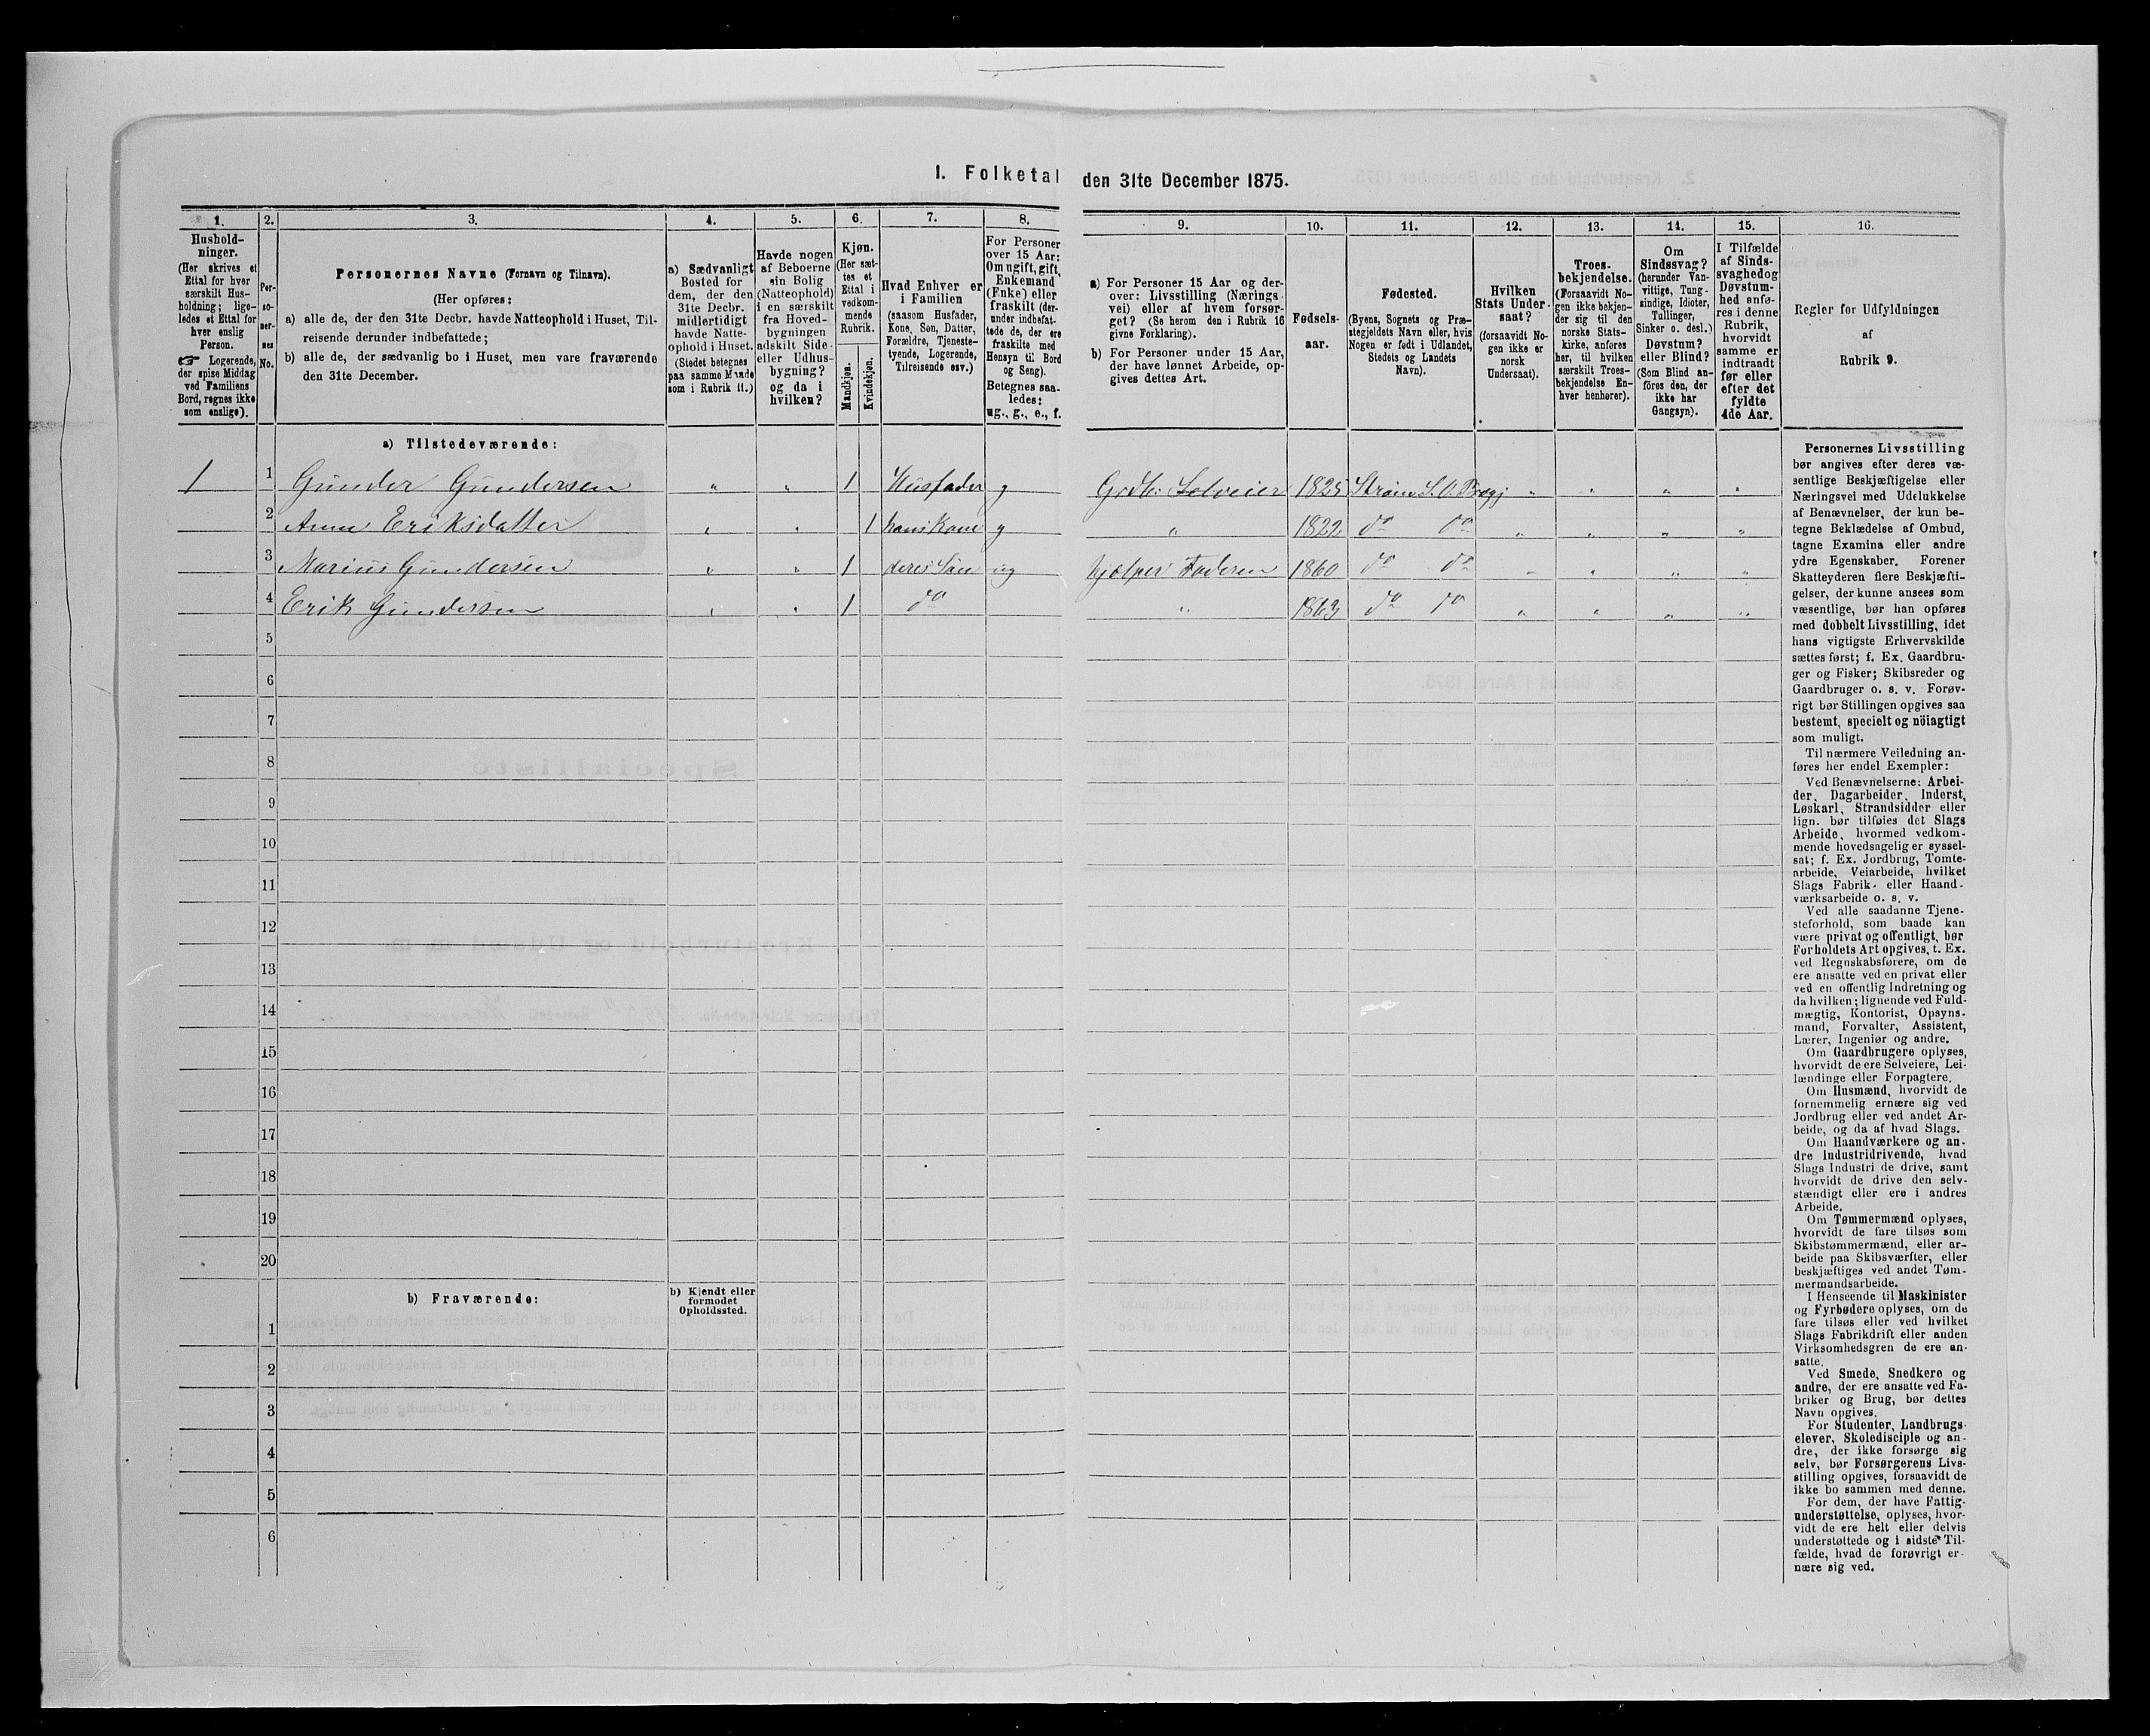 1. Folketal den 31te December 1875.
1.
Hushold-
ninger.
(Her skrives et
Ettal for hver
særskilt Hus-
holdning; lige-
ledes et Ettal for
hver enslig
Person.
☞ Logerende,
der spise Middag
ved Familiens
Bord, regnes ikke
som enslige).
2.
Per-
so-
ner-
nes
No.
3.
Personernes Navne (Fornavn og Tilnavn).
(Her opføres:
a) alle de, der den 31te Decbr. havde Natteophold i Huset, Til-
reisende derunder indbefattede;
b) alle de, der sædvanlig bo i Huset, men vare fraværende
den 31te December.
4.
a) Sædvanligt
Bosted for
dem, der den
31te Decbr.
midlertidigt
havde Natte-
ophold i Huset.
(Stedet betegnes
paa samme Maade
som i Rubrik 11.)
5.
Havde nogen
af Beboerne
sin Bolig
(Natteophold)
i en særskilt
fra Hoved-
bygningen
adskilt Side-
eller Udhus-
bygning?
og da i
hvilken?
6.
Kjøn.
(Her sæt-
tes et
Ettal i
vedkom-
mende
Rubrik.
Mandkjøn.
Kvindekjøn.
7.
Hvad Enhver er
i Familien
(saasom Husfader,
Kone, Søn, Datter,
Forældre, Tjeneste-
tyende, Logerende,
Tilreisende osv.)
8.
For Personer
over 15 Aar:
Om ugift, gift,
Enkemand
(Enke) eller
fraskilt (der-
under indbefat-
tede de, der ere
fraskilte med
Hensyn til Bord
og Seng).
Betegnes saa-
ledes:
ug., g., e., f.
9.
a) For Personer 15 Aar og der-
over: Livsstilling (Nærings-
vei) eller af hvem forsør-
get? (Se herom den i Rubrik 16
givne Forklaring).
b) For Personer under 15 Aar,
der have lønnet Arbeide, op-
gives dettes Art.
10.
Fødsels-
aar.
11.
Fødested.
(Byens, Sognets og Præ-
stegjeldets Navn eller, hvis
Nogen er født i Udlandet,
Stedets og Landets
Navn).
12.
Hvilken
Stats Under-
saat?
(forsaavidt No-
gen ikke er
norsk
Undersaat).
13.
Troes-
bekjendelse.
(Forsaavidt No-
gen ikke bekjen-
der sig til den
norske Stats-
kirke, anføres
her, til hvilken
særskilt Troes-
bekjendelse En-
hver henhører).
14.
Om
Sindssvag?
(herunder Van-
vittige, Tung-
sindige, Idioter,
Tullinger,
Sinker o. desl.)
Døvstum?
eller Blind?
(Som Blind an-
føres den, der
ikke har
Gangsyn).
15.
I Tilfælde
af Sinds-
svaghed og
Døvstum-
hed anfø-
res i denne
Rubrik,
hvorvidt
samme er
indtraadt
før eller
efter det
fyldte
4de Aar.
16.
Regler for Udfyldningen
af
Rubrik 9.
a) Tilstedeværende:
1 1 Gunder Gundersen " " 1 Husfader g Grdbr. Selveier 1825 " " " "
2 Anne Eriksdatter " " 1 hans Kone g " 1822 do do " " " "
3 Marius Gundersen " " 1 deres Søn ug hjælper Faderen 1860 do do " " " "
4 Erik Gundersen " " 1 do " 1863 do do " " " "
5
6
7
8
9
10
11
12
13
14
15
16
17
18
19
20
b) Fraværende:
b) Kjendt eller
formodet
Opholdssted.
1
2
3
4
5
6
Personernes Livsstilling
bør angives efter deres væ-
sentlige Beskjæftigelse eller
Næringsvei med Udelukkelse
af Benævnelser, der kun be-
tegne Beklædelse af Ombud,
tagne Examina eller andre
ydre Egenskaber. Forener
Skatteyderen flere Beskjæfti-
gelser, der kunne ansees som
væsentlige, bør han opføres
med dobbelt Livsstilling, idet
hans vigtigste Erhvervskilde
sættes først; f. Ex. Gaardbru-
ger og Fisker; Skibsreder og
Gaardbruger o. s. v. Forøv-
rigt bør Stillingen opgives saa
bestemt, specielt og nöiagtigt
som muligt.
Til nærmere Veiledning an-
føres her endel Exempler:
Ved Benævnelserne: Arbei-
der, Dagarbeider, Inderst,
Løskarl, Strandsidder eller
lign. bør tilføies det Slags
Arbeide, hvormed vedkom-
mende hovedsagelig er syssel-
sat; f. Ex. Jordbrug, Tomte-
arbeide, Veiarbeide, hvilket
Slags Fabrik- eller Haand-
værksarbeide o. s. v.
Ved alle saadanne Tjene-
steforhold, som baade kan
være privat og offentligt, bør
Forholdets Art opgives, t. Ex.
ved Regnskabsførere, om de
ere ansatte ved en privat eller
ved en offentlig Indretning og
da hvilken; lignende ved Fuld-
mægtig, Kontorist, Opsyns-
mand, Forvalter, Assistent,
Lærer, Ingeniør og andre.
Om Gaardbrugere oplyses,
hvorvidt de ere Selveiere, Lei-
lændinge eller Forpagtere.
Om Husmænd, hvorvidt de
fornemmelig ernære sig ved
Jordbrug eller ved andet Ar-
beide, og da af hvad Slags.
Om Haandværkere og an-
dre Industridrivende, hvad
Slags Industri de drive, samt
hvorvidt de drive den selv-
stændigt eller ere i andres
Arbeide.
Om Tømmermænd oplyses,
hvorvidt de fare tilsøs som
Skibstømmermænd, eller ar-
beide paa Skibsværfter, eller
beskjæftiges ved andet Tøm-
mermandsarbeide.
I Henseende til Maskinister
og Fyrbødere oplyses, om de
fare tilsøs eller ved hvilket
Slags Fabrikdrift eller anden
Virksomhedsgren de ere an-
satte.
Ved Smede, Snedkere og
andre, der ere ansatte ved Fa-
briker og Brug, bør dettes
Navn opgives.
For Studenter, Landbrugs-
elever, Skoledisciple og an-
dre, der ikke forsørge sig
selv, bør Forsørgerens Livs-
stilling opgives, forsaavidt de
ikke bo sammen med denne.
For dem, der have Fattig-
understøttelse, oplyses, hvor-
vidt de ere helt eller delvis
understøttede og i sidste Til-
fælde, hvad de forøvrigt er-
nære sig ved.